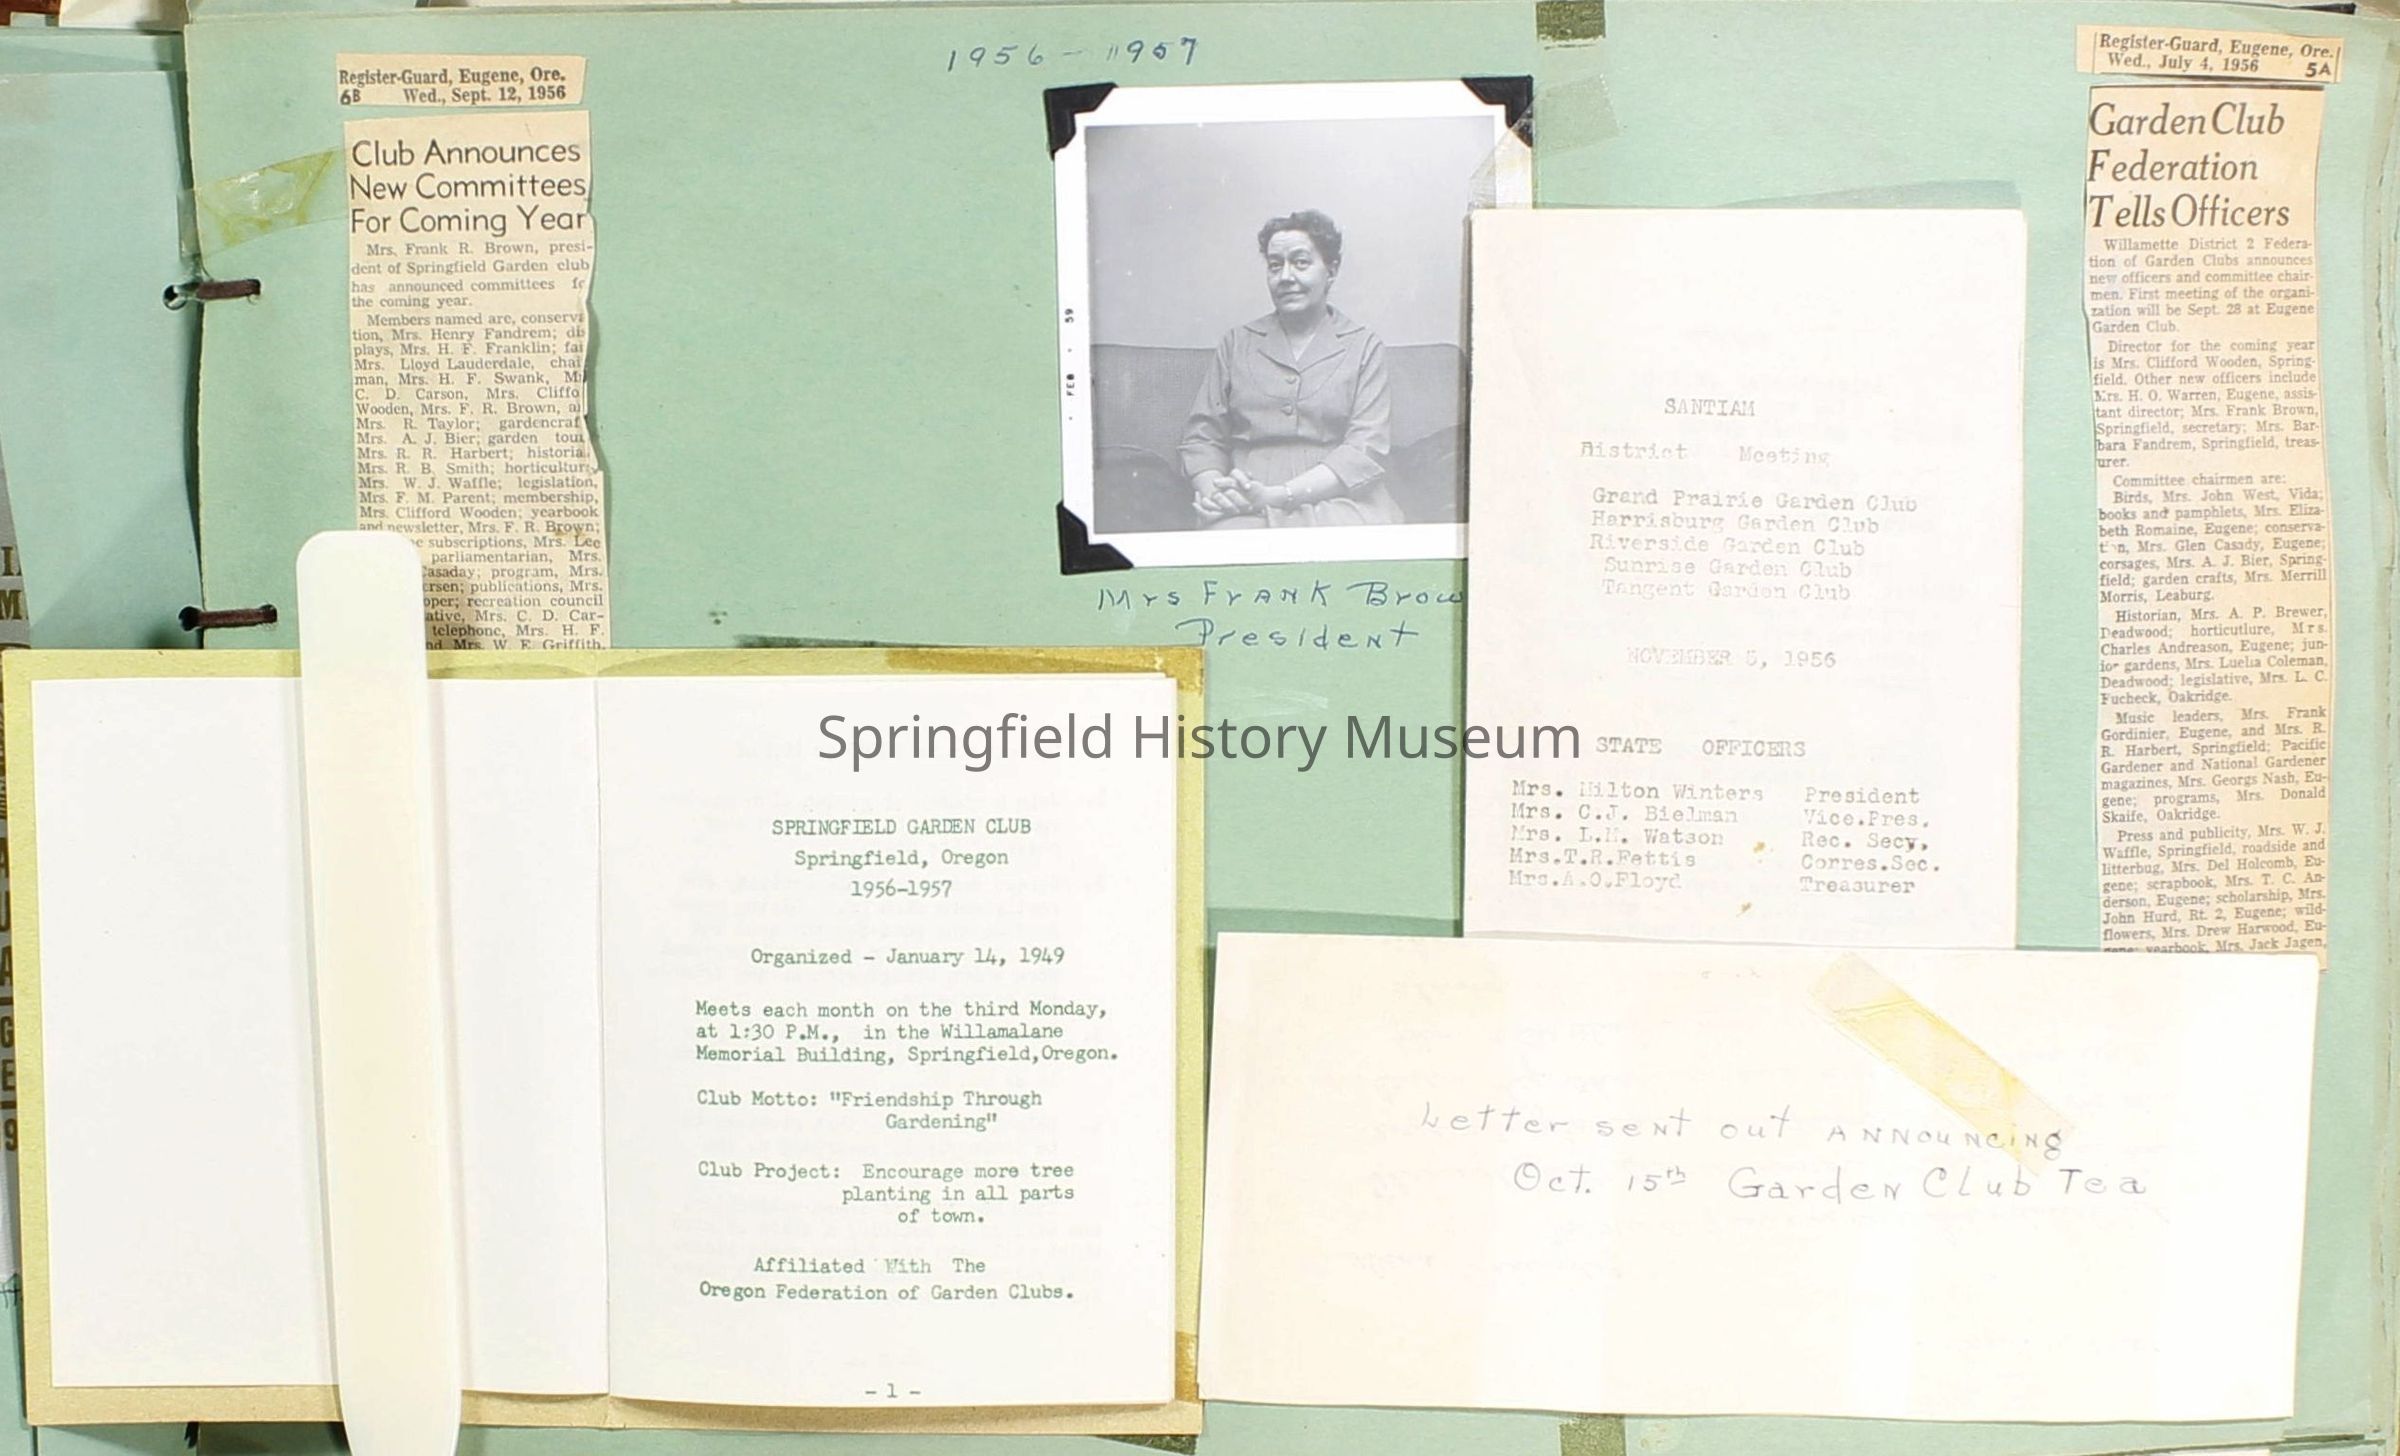 1956 - 1957
Register-Guard, Eugene, Ore.
6B Wed., Sept. 12, 1956
Club Announces
New Committees
For Coming Year
Mrs. Frank R. Brown, presi-
dent of Springfield Garden club
has announced committees
the coming year.
Members named are, conserva
tion, Mrs. Henry Fandrem; dis
plays, Mrs. H. F. Franklin; fai
Mrs. Lloyd Lauderdale, chai
man, Mrs. H. F. Swank, M
C. D. Carson, Mrs. Cliffo
Wooden, Mrs. F. R. Brown, a
Mrs. R. Taylor; gardencraf
Mrs. A. J. Bier; garden tou
Mrs. R. R. Harbert; historia
Mrs. R. B. Smith; horticultur
Mrs. W. J. Waffle; legislation,
Mrs. F. M. Parent; membership,
Mrs. Clifford Wooden; yearbook
and newsletter, Mrs. F. R. Brown;
subscriptions, Mrs. Lee
parliamentarian, Mrs.
asaday; program, Mrs.
rsen; publications, Mrs.
oper; recreation council
ative, Mrs. C. D. Car-
telephone, Mrs. H. F.
nd Mrs. W. E. Griffith.
FEB • 59
Mrs Frank Brow
President
SANTIAM
District Meeting
Grand Prairie Garden Club
Harrisburg Garden Club
Riverside Garden Club
Sunrise Garden Club
Tangent Garden Club
NOVEMBER 5, 1956
STATE OFFICERS
Mrs. Milton Winters President
Mrs. C.J. Bielman Vice.Pres.
Mrs. L.M. Watson Rec. Secy,
Mrs.T.R.Fettis Corres.Sec.
Mrs.A.O.Floyd Treasurer
Register-Guard, Eugene, Ore.
Wed., July 4, 1956 5A
Garden Club
Federation
Tells Officers
Willamette District 2 Federa-
tion of Garden Clubs announces
new officers and committee chair-
men. First meeting of the organi-
zation will be Sept. 28 at Eugene
Garden Club.
Director for the coming year
is Mrs. Clifford Wooden, Spring-
field. Other new officers include
Mrs. H. O. Warren, Eugene, assis-
tant director; Mrs. Frank Brown,
Springfield, secretary; Mrs. Bar-
bara Fandrem, Springfield, treas-
urer.
Committee chairmen are:
Birds, Mrs. John West, Vida;
books and pamphlets, Mrs. Eliza-
beth Romaine, Eugene; conserva-
tion, Mrs. Glen Casady, Eugene;
corsages, Mrs. A. J. Bier, Spring-
field; garden crafts, Mrs. Merrill
Morris, Leaburg.
Historian, Mrs. A. P. Brewer,
Deadwood; horticutlure, Mrs.
Charles Andreason, Eugene; jun-
ior gardens, Mrs. Luella Coleman,
Deadwood; legislative, Mrs. L. C.
Fucheck, Oakridge.
Music leaders, Mrs. Frank
Gordinier, Eugene, and Mrs. R.
R. Harbert, Springfield; Pacific
Gardener and National Gardener
magazines, Mrs. Georgs Nash, Eu-
gene; programs, Mrs. Donald
Skaife, Oakridge.
Press and publicity, Mrs. W. J.
Waffle, Springfield, roadside and
litterbug, Mrs. Del Holcomb, Eu-
gene; scrapbook, Mrs. T. C. An-
derson, Eugene; scholarship, Mrs.
John Hurd, Rt. 2, Eugene; wild-
flowers, Mrs. Drew Harwood, Eu-
gene; yearbook, Mrs. Jack Jagen,
Springfield History Museum
SPRINGFIELD GARDEN CLUB
Springfield, Oregon
1956-1957
Organized - January 14, 1949
Meets each month on the third Monday,
at 1:30 P.M., in the Willamalane
Memorial Building, Springfield,Oregon.
Club Motto: "Friendship Through
Gardening"
Club Project: Encourage more tree
planting in all parts
of town.
Affiliated With The
Oregon Federation of Garden Clubs.
- 1 -
Letter sent out announcing
Oct. 15th Garden Club Tea